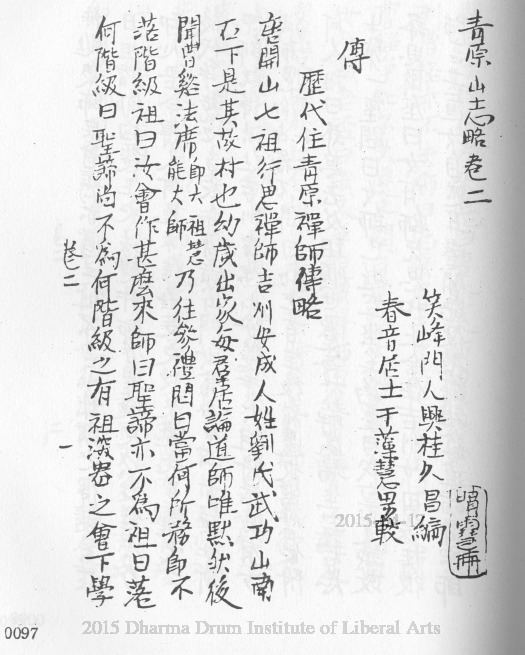 青原山志略卷二
笑峰門人興桂久昌編
春音居士于藻慧男較
傳
歷代住青原禪師傳略
唐開山七祖行思禪師吉州安成人姓劉氏武功山南
石下是其故村也幼歲出家每羣居論道師唯默然後
聞曹谿法席師大祖慧能大師乃往參禮問曰當何所務師不
落階級祖曰汝會作甚麼來師曰聖諦亦不為祖曰落
何階級曰聖諦尚不為何階級之有祖深器之會下學
卷二
一
0097
2015 Dharma Drum Institute of Liberal Arts